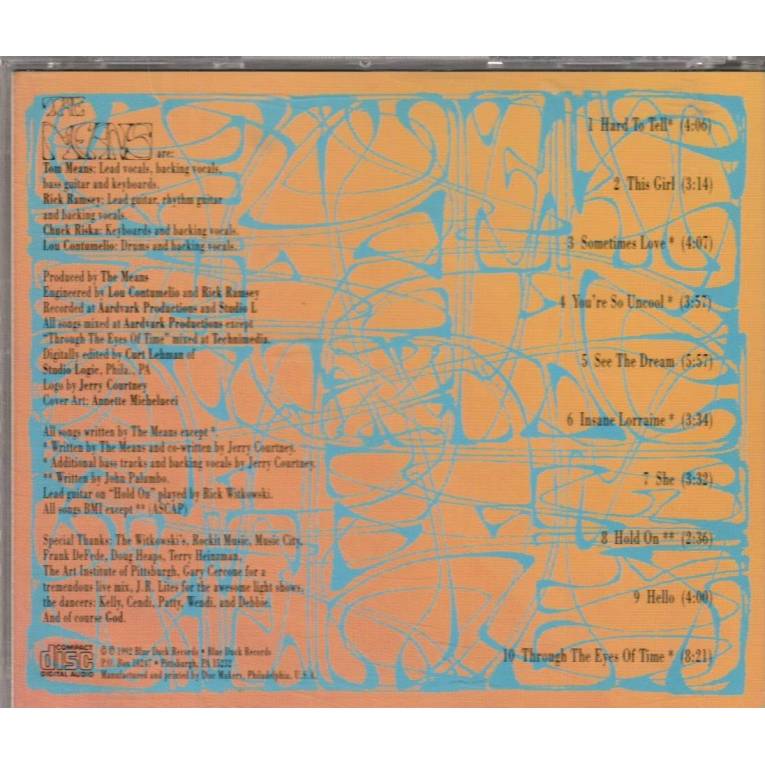 THE
MEANS are:
Tom Means: Lead vocals, backing vocals,
bass guitar and keyboards.
Rick Ramsey: Lead guitar, rhythm guitar
and backing vocals.
Chuck Riska: Keyboards and backing vocals.
Lou Contumelio: Drums and backing vocals.
Produced by The Means
Engineered by Lou Contumelio and Rick Ramsey
Recorded at Aardvark Productions and Studio L
All songs mixed at Aardvark Productions except
"Through The Eyes Of Time" mixed at Technimedia.
Digitally edited by Curt Lehman of
Studio Logic, Phila., PA
Logo by Jerry Courtney
Cover Art: Annette Michelucci
All songs written by The Means except *.
* Written by The Means and co-written by Jerry Courtney.
* Additional bass tracks and backing vocals by Jerry Courtney.
** Written by John Palumbo.
Lead guitar on "Hold On" played by Rick Witkowski.
All songs BMI except ** (ASCAP)
Special Thanks: The Witkowski's, Rockit Music, Music City,
Frank DeFede, Doug Heaps, Terry Heinzman,
The Art Institute of Pittsburgh, Gary Cercone for a
tremendous live mix, J.R. Lites for the awesome light shows,
the dancers: Kelly, Cendi, Patty, Wendi, and Debbie.
And of course God.
COMPACT
disc
DIGITAL AUDIO
© ℗ 1992 Blue Duck Records • Blue Duck Records
P.O. Box 10247 • Pittsburgh, PA 15232
Manufactured and printed by Disc Makers, Philadelphia, U.S.A.
1 Hard To Tell* (4:06)
2 This Girl (3:14)
3 Sometimes Love * (4:07)
4 You're So Uncool * (3:57)
5 See The Dream (5:57)
6 Insane Lorraine * (3:34)
7 She (3:32)
8 Hold On ** (2:36)
9 Hello (4:00)
10 Through The Eyes Of Time * (8:21)